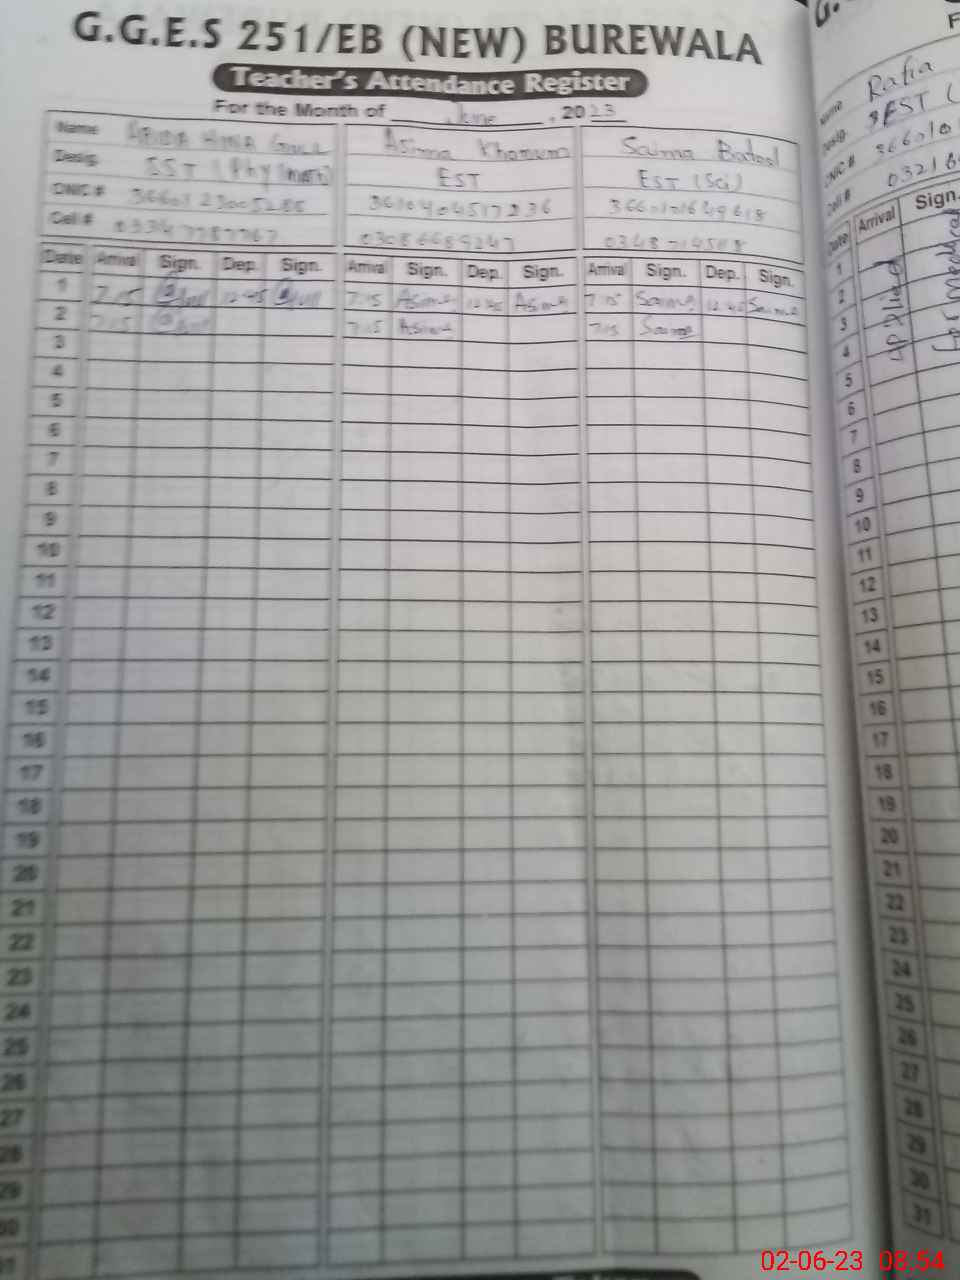 G.G.E.S 251/EB (NEW) BUREWALA
Teacher's Attendance Register
For the Month of June, 2023
Name Asimna Khanum Saima Batool
Desig. SST (Phy/math) EST EST (Sci)
CNIC #
Cell # 03347787767 03086689247
Date Arrival Sign. Dep. Sign. Arrival Sign. Dep. Sign. Arrival Sign. Dep. Sign.
1 7:15 12:45 7:15 Asima 12:45 Asima 7:15 Saima 12:45 Saima
2 7:15 7:15 Asima 7:15 Saima
3
4
5
6
7
8
9
10
11
12
13
14
15
16
17
18
19
20
21
22
23
24
25
26
27
28
29
30
31
Name Rafia
Desig.
CNIC #
Cell #
Date Arrival Sign.
1
2
3
4
5
6
7
8
9
10
11
12
13
14
15
16
17
18
19
20
21
22
23
24
25
26
27
28
29
30
31
02-06-23 08:54